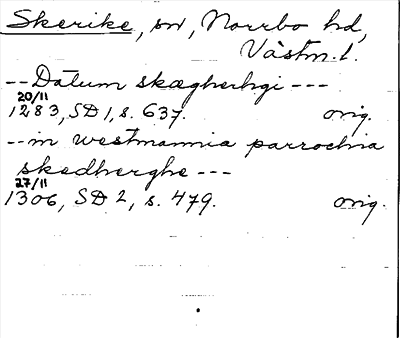 Skerike, sn, Norrbo hd,
Västm. l.
-- Datum skægherhgi ---
20/11
1283, SD 1, s. 637. orig.
-- in westmannia parrochia
skedherghe ---
27/11
1306, SD 2, s. 479. orig.